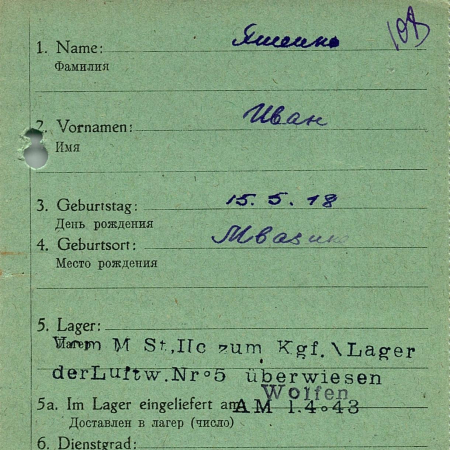 109
1. Name: Яшенко
Фамилия
2. Vornamen: Иван
Имя
3. Geburtstag: 15. 5. 18
День рождения
4. Geburtsort:
Место рождения
5. Lager:
Лагерь
Vom M St,IIc zum Kgf.\Lager
derLuftw.Nr°5 überwiesen
Wolfen
5a. Im Lager eingeliefert am AM 1.4°43
Доставлен в лагерь (число)
6. Dienstgrad: